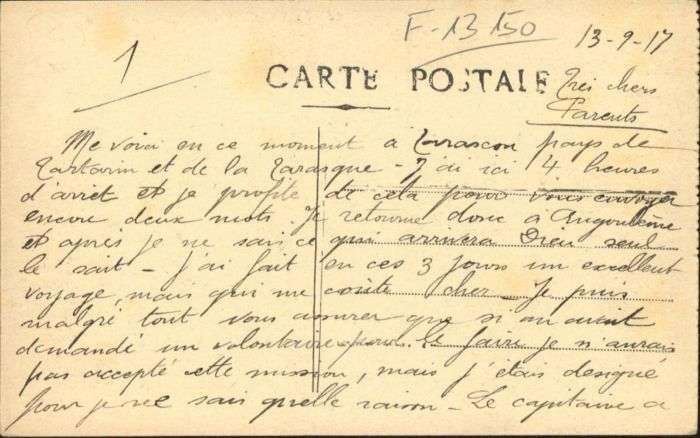 F-13 150
1
13-9-17
CARTE POSTALE
Très chers
Parents
Me voici en ce moment à Tarascon pays de
Tartarin et de la Tarasque - J'ai ici 4 heures
d'arret et je profite de cela pour vous envoyer
encore deux mots. Je retourne donc à Angoulême
et après je ne sais ce qui arrivera Dieu seul
le sait - j'ai fait en ces 3 jours un excellent
voyage, mais qui me coûte cher - Je puis
malgré tout vous assurer que si on avait
demandé un volontaire pour le faire je n'aurais
pas accepté cette mission, mais j'étais designé
pour je ne sais quelle raison - Le capitaine a